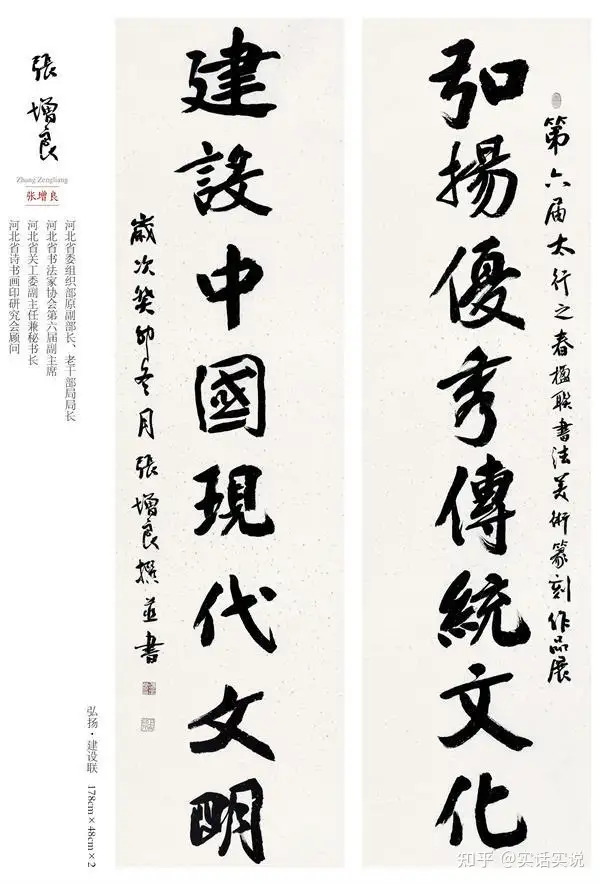 弘揚優秀傳統文化
第六届太行之春楹联書法美術篆刻作品展
建設中國現代文明
歲次癸卯冬月張增良撰並書
張增良
Zhang Zengliang
张增良
河北省委组织部原副部长、老干部局局长
河北省书法家协会第六届副主席
河北省关工委副主任兼秘书长
河北省诗书画印研究会顾问
弘扬·建设联 178cm×48cm×2
知乎 @实话实说